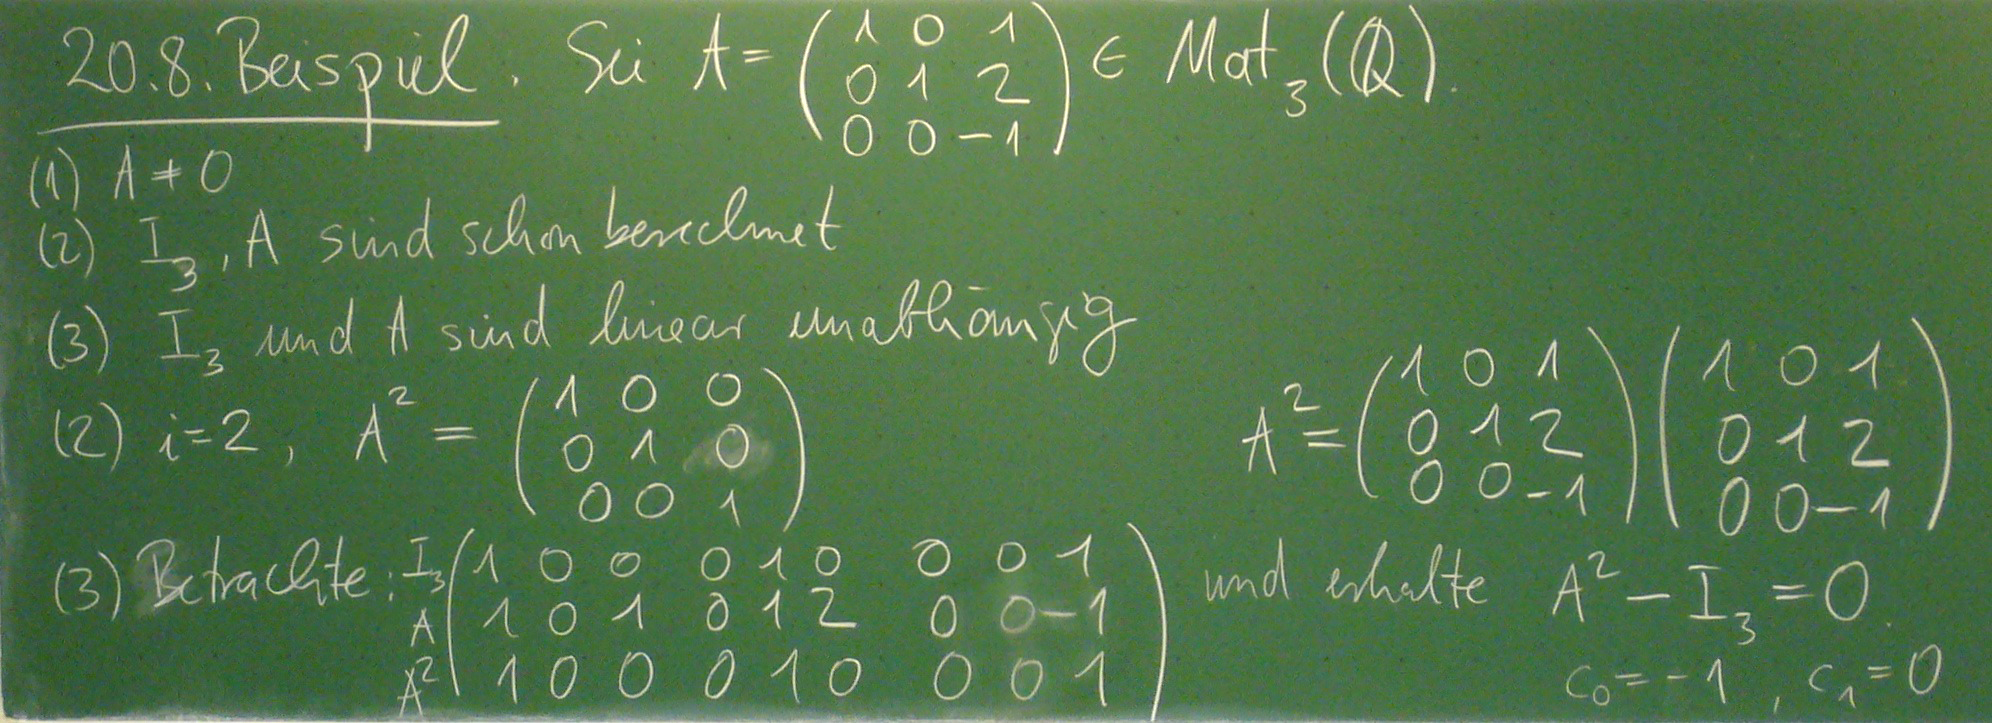 20.8. Beispiel. Sei A = ( 1 0 1 ; 0 1 2 ; 0 0 -1 ) ∈ Mat₃(ℚ).
(1) A ≠ 0
(2) I₃, A sind schon berechnet
(3) I₃ und A sind linear unabhängig
(2) i=2, A² = ( 1 0 0 ; 0 1 0 ; 0 0 1 )
A² = ( 1 0 1 ; 0 1 2 ; 0 0 -1 ) ( 1 0 1 ; 0 1 2 ; 0 0 -1 )
(3) Betrachte: I₃ ( 1 0 0 0 1 0 0 0 1 ) und erhalte A² - I₃ = 0.
A ( 1 0 1 0 1 2 0 0 -1 )
A² ( 1 0 0 0 1 0 0 0 1 ) c₀ = -1, c₁ = 0